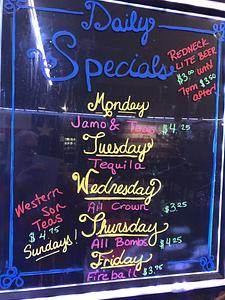 Daily
Specials
REDNECK
LITE BEER
$3.00 until
7pm $3.50
after!
Monday
Jamo & $4.25
Tuesday
Tequila
Wednesday
All Crown $3.25
Thursday
All Bombs $4.25
Friday
Fireball $3.75
Western
Son
Teas
$4.75
Sundays!